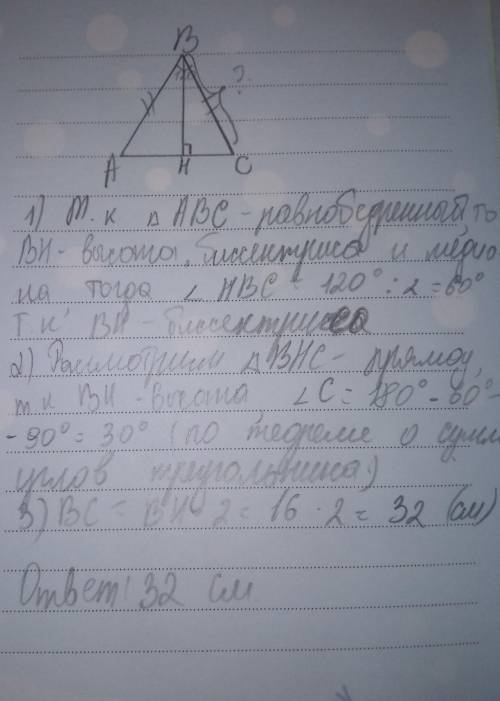 B
?
A H C
1) Т.к △ ABC - равнобедренный, то
BH - высота, биссектриса и медиа
на тогда ∠ HBC = 120° : 2 = 60°
т.к BH - биссектриса
2) Рассмотрим △BHC - прямоу,
т.к BH - высота ∠C = 180° - 60° -
- 90° = 30° (по теореме о сумм
углов треугольника)
3) BC = BH · 2 = 16 · 2 = 32 (см)
Ответ: 32 см